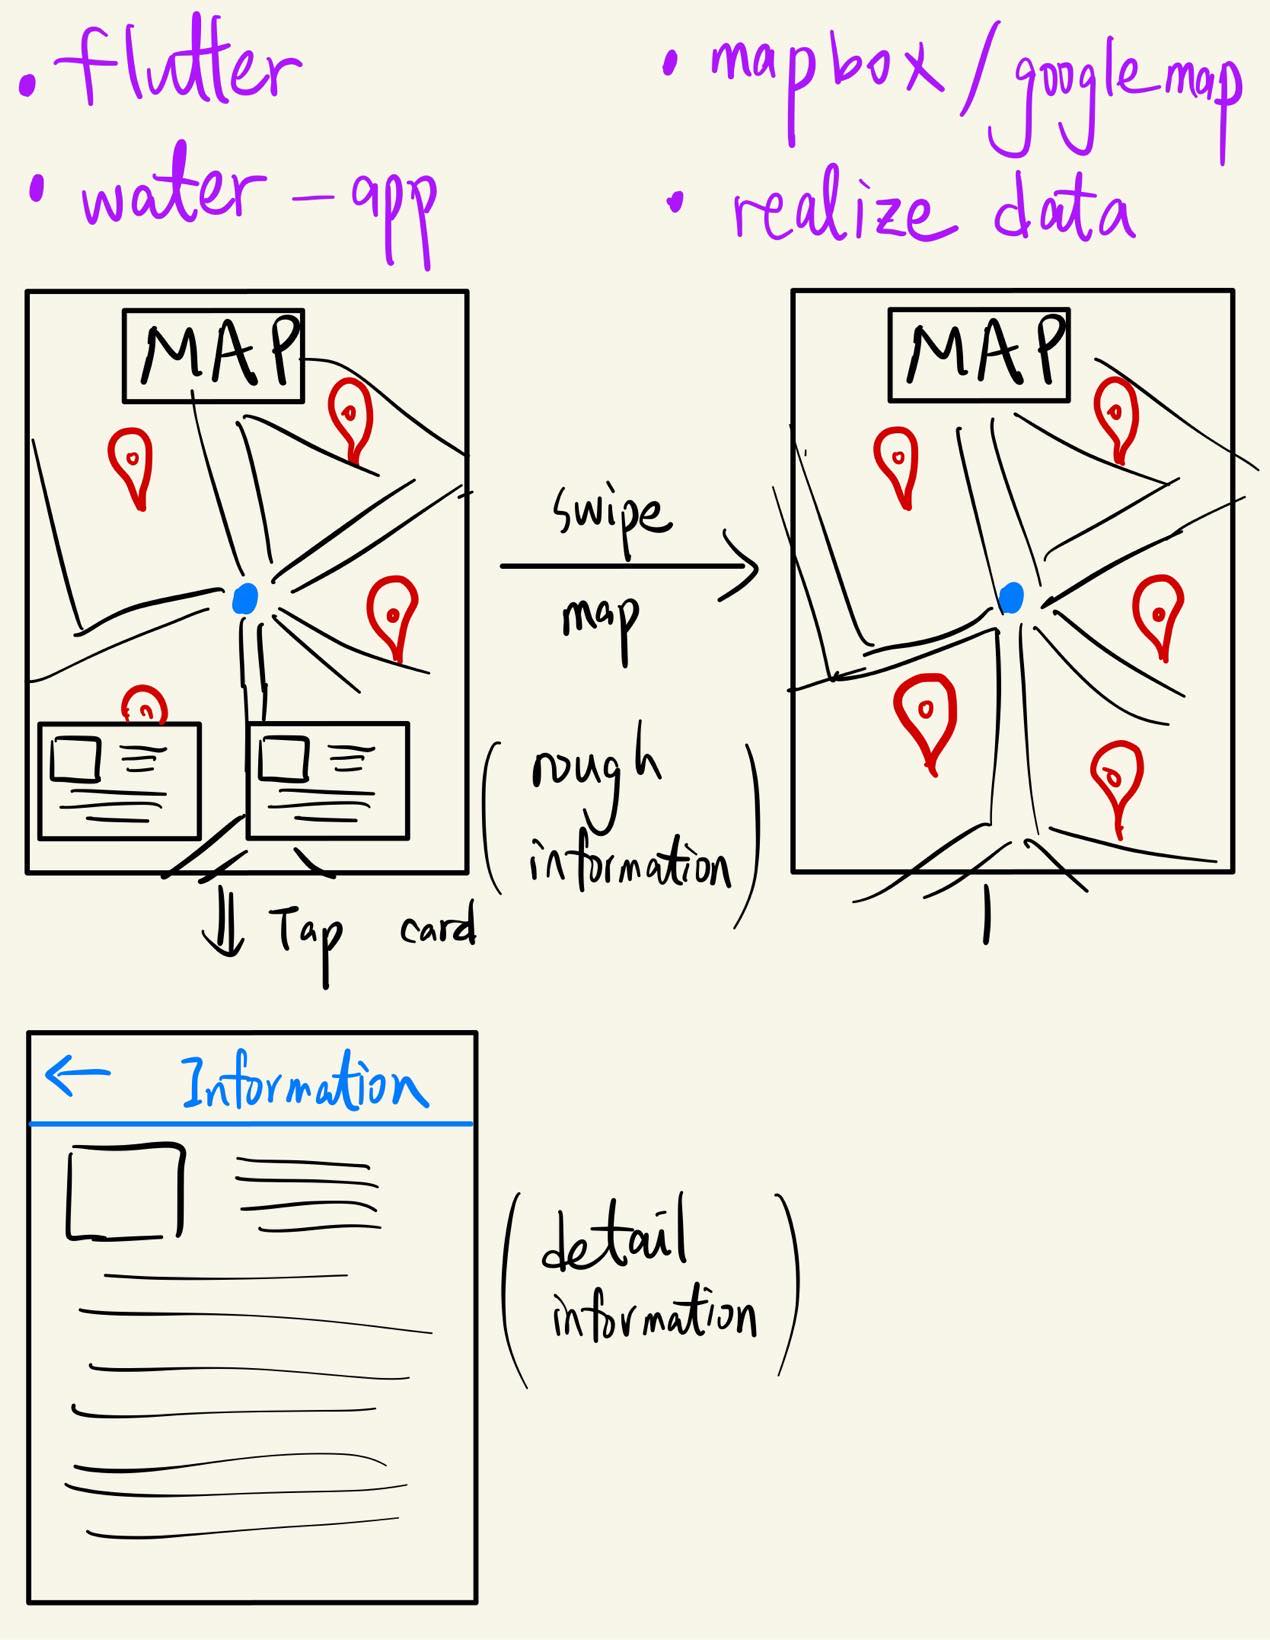 • flutter
• water-app
• mapbox/googlemap
• realize data
MAP
swipe
map
(rough
information)
MAP
Tap card
← Information
(detail
information)